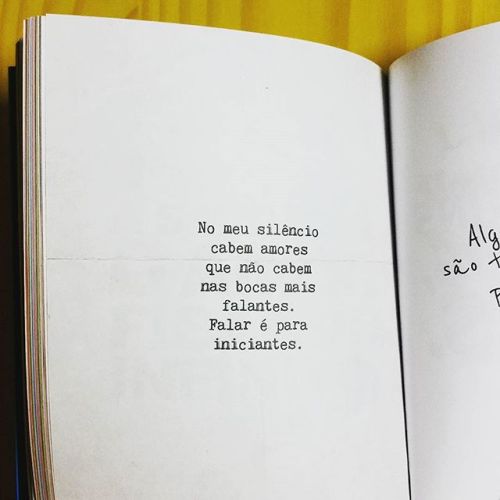 No meu silêncio
cabem amores
que não cabem
nas bocas mais
falantes.
Falar é para
iniciantes.
são